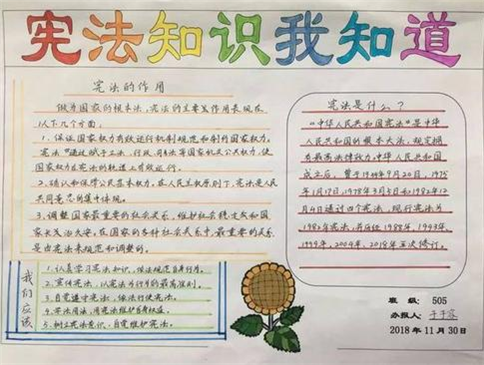 宪法知识我知道
宪法的作用
做为国家的根本法,宪法的主要作用表现在
以下几个方面:
1、保证国家权力有效运行机制规范和制约国家权力。
宪法通过赋予立法、行政、司法等国家机关公共权力,使
国家权力在宪法的轨道上有效运行。
2、确认和保障公民基本权力。在人民主权原则下,宪法是人民
共同意志的集中体现。
3、调整国家最重要的社会关系,维护社会稳定和国
家长治久安。在国家的各种社会关系中,最重要的关系
是由宪法来规范和调整的。
宪法是什么?
《中华人民共和国宪法》是中华
人民共和国的根本大法,规定拥
有最高法律效力。中华人民共和国
成立后,曾于1954年9月20日、1975
年1月17日、1978年3月5日和1982年12
月4日通过四个宪法,现行宪法为
1982年宪法,并历经1988年、1993年、
1999年、2004年、2018年五次修订。
我们应该
1、认真学习宪法知识,依法规范自身行为。
2、宣传宪法,以宪法为行为的最高准则。
3、自觉遵守宪法,依法行使宪法。
4、学法用法,用宪法维护自身权益。
5、树立宪法意识,自觉维护宪法。
班 级: 505
办报人:
2018年11月30日